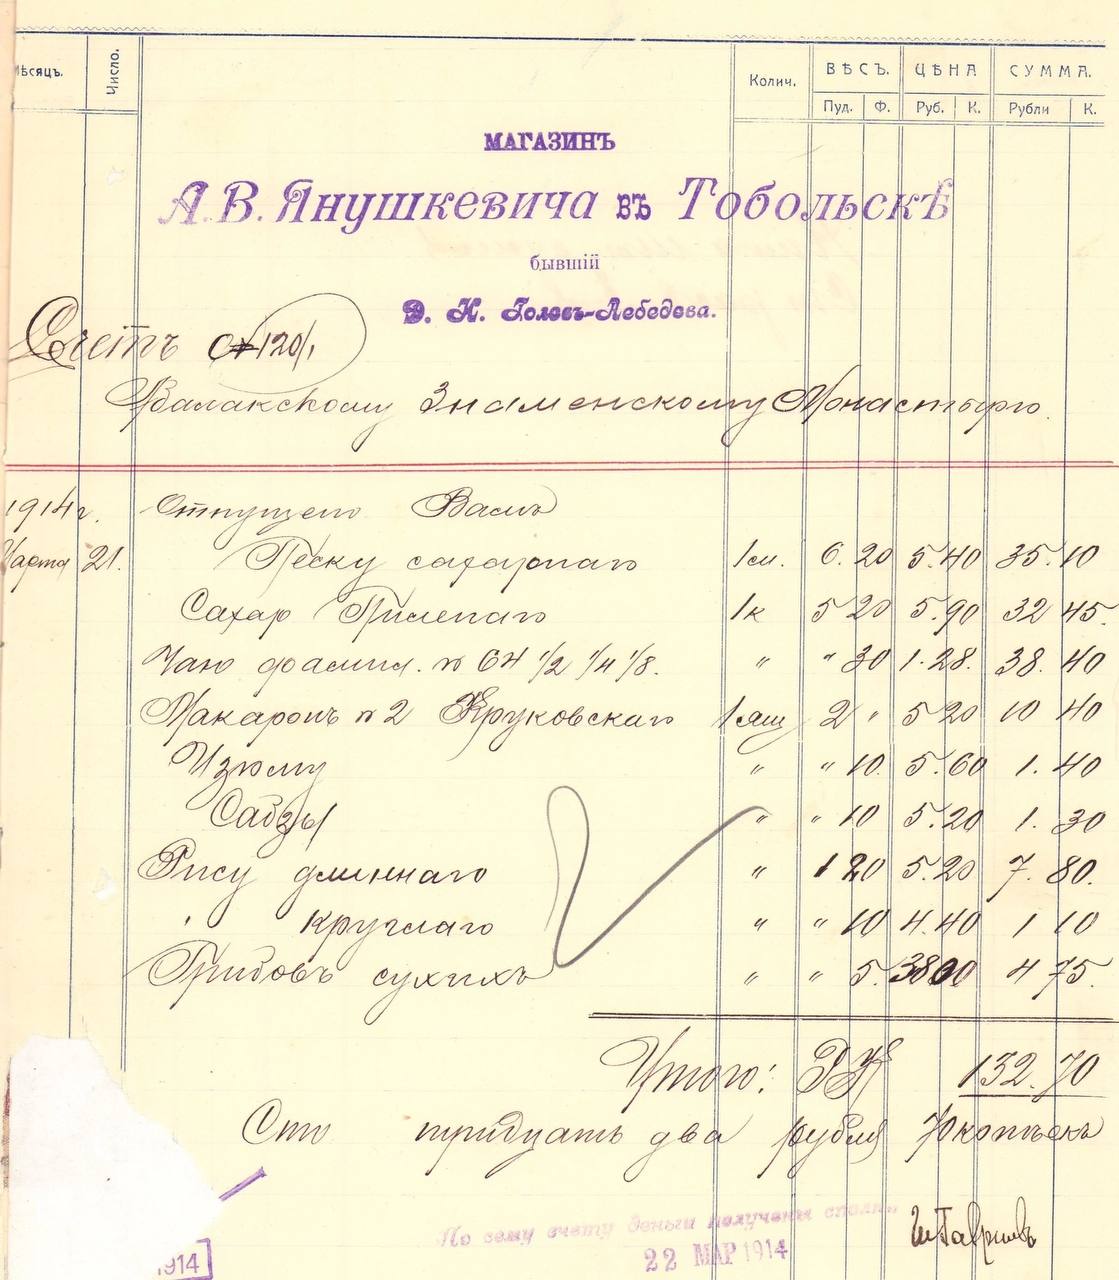 Мѣсяцъ. Число. Колич. ВѢСЪ. ЦѢНА СУММА.
Пуд. Ф. Руб. К. Рубли К.
МАГАЗИНЪ
А. В. Янушкевича въ Тобольскѣ
бывшій
Д. Н. Голевъ-Лебедева.
Счетъ 120/1
Абалакскому Знаменскому Монастырю.
1914 г. Отпущено Вамъ
Марта 21. Песку сахарнаго 1 см. 6. 20 5. 40 35. 10
Сахар Пиленаго 1 к 5 20 5. 90 32 45.
Чаю фамил. № 64 1/2 1/4 1/8. " " 30 1. 28. 38. 40
Макаронъ № 2 Круковскаго 1 ящ 2 " 5 20 10 40
Изюму " " 10. 5. 60 1. 40
Сабзы " " 10 5. 20 1. 30
Рису длиннаго " 1 20 5. 20 7. 80.
" круглаго " " 10 4. 40 1 10
Грибовъ сухихъ " " 5. 38 00 4 75.
Итого: РК 132. 70
Сто тридцать два рубля 70 копѣекъ
По сему счету деньги получены сполна
22 МАР 1914
1914